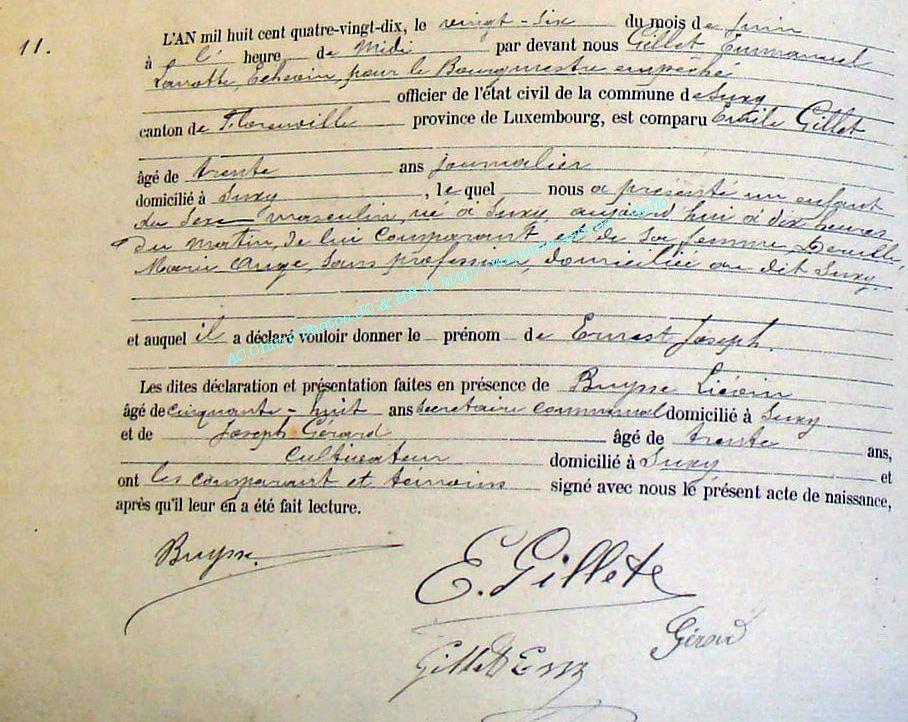 11.
L'AN mil huit cent quatre-vingt-dix, le vingt-six du mois de Juin
à l' heure de Midi par devant nous Gillet Emmanuel
Echevin, pour le Bourgmestre empêché
officier de l'état civil de la commune de Suxy
canton de Florenville province de Luxembourg, est comparu Emile Gillet
âgé de trente ans journalier
domicilié à Suxy, lequel nous a présenté un enfant
du sexe masculin, né à Suxy, aujourd'hui à dix heures
du matin, de lui comparant et de sa femme
Marie Ange, sans profession, domiciliée au dit Suxy.
et auquel il a déclaré vouloir donner le prénom de Ernest Joseph.
Les dites déclaration et présentation faites en présence de Buysse
âgé de cinquante-huit ans secrétaire communal domicilié à Suxy
et de Joseph Gérard âgé de trente ans,
cultivateur domicilié à Suxy et
ont les comparant et témoins signé avec nous le présent acte de naissance,
après qu'il leur en a été fait lecture.
Buysse.
E. Gillet
Gérard
Gillet Em